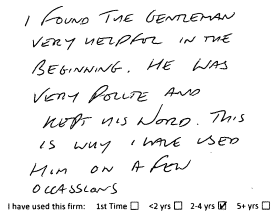 I FOUND THE GENTLEMAN
VERY HELPFUL IN THE
BEGINNING. HE WAS
VERY POLITE AND
KEPT HIS WORD. THIS
IS WHY I HAVE USED
HIM ON A FEW
OCCASSIONS
I have used this firm: 1st Time ☐ <2 yrs ☐ 2-4 yrs ☑ 5+ yrs ☐